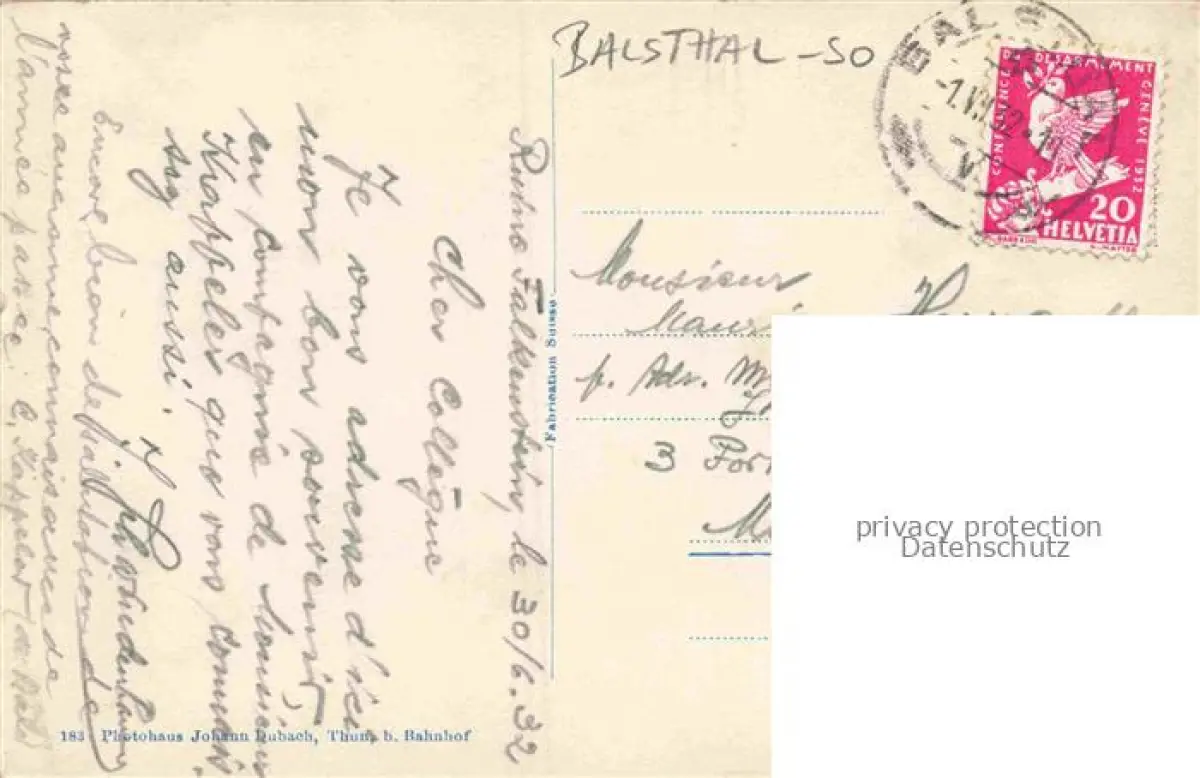 BALSTHAL-SO
BALST
-1.VII.32.-
CONFERENCE DU DESARMEMENT GENÈVE 1932
20
HELVETIA
Ruine Falkenstein, le 30/6.32
Cher Collègue
Je vous adresse d'ici
mon bon souvenir,
en compagnie de Monsieur
Kappeler que vous connais-
sez aussi.
Encore bien des salutations de
votre ancienne connaissance de
l'année passée: C.
Monsieur
p. Adr.
3
Fabrication Suisse
183 Photohaus Johann Dubach, Thun, b. Bahnhof
privacy protection
Datenschutz